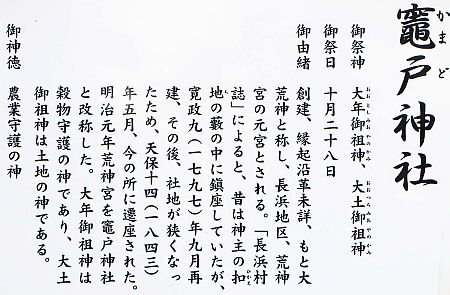 竈戸神社
かまど
御祭神 大年御祖神、大土御祖神
おおとしみおやのかみ おおつちみおやのかみ
御祭日 十月二十八日
御由緒 創建、縁起沿革未詳、もと大
荒神と称し、長浜地区、荒神
宮の元宮とされる。「長浜村
誌」によると、昔は神主の扣
かかえ
地の藪の中に鎮座していたが、
寛政九(一七九七)年九月再
建、その後、社地が狭くなっ
たため、天保十四(一八四三)
年五月、今の所に遷座された。
明治元年荒神宮を竈戸神社
と改称した。大年御祖神は
穀物守護の神であり、大土
御祖神は土地の神である。
御神徳 農業守護の神